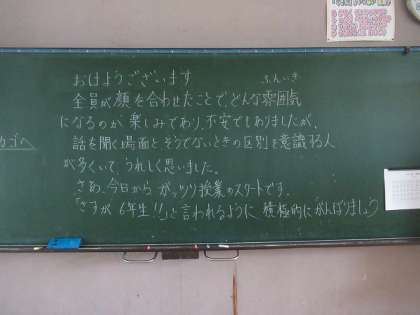 おはようございます
ふんいき
全員が顔を合わせたことで、どんな雰囲気
になるのが楽しみであり、不安でもありましたが、
話を聞く場面とそうでないときの区別を意識する人
が多くいて、うれしく思いました。
さあ、今日から ガッツリ授業のスタートです。
「さすが 6年生!!」と言われるように 積極的に がんばりましょう
カゴへ